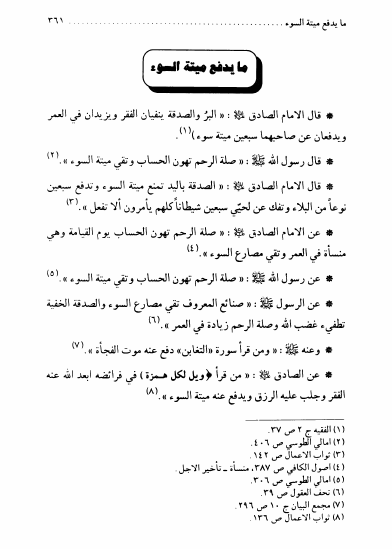 ما يدفع ميتة السوء ........................ ٣٦١
ما يدفع ميتة السوء
* قال الامام الصادق ﷺ : « البرُّ والصدقة ينفيان الفقر ويزيدان في العمر
ويدفعان عن صاحبهما سبعين ميتة سوء )(١).
* قال رسول الله ﷺ : « صلة الرحم تهون الحساب وتقي ميتة السوء ».(٢)
* قال الامام الصادق ﷺ : « الصدقة باليد تمنع ميتة السوء وتدفع سبعين
نوعاً من البلاء وتفك عن لحيّي سبعين شيطاناً كلهم يأمرون ألا تفعل ».(٣)
* عن الامام الصادق ﷺ : « صلة الرحم تهون الحساب يوم القيامة وهي
منسأة في العمر وتقي مصارع السوء ».(٤)
* عن رسول الله ﷺ : « صلة الرحم تهون الحساب وتقي ميتة السوء ».(٥)
* عن الرسول ﷺ : « صنائع المعروف تقي مصارع السوء والصدقة الخفية
تطفيء غضب الله وصلة الرحم زيادة في العمر ».(٦)
* وعنه ﷺ : « ومن قرأ سورة «التغابن» دفع عنه موت الفجأة ».(٧)
* عن الصادق ﷺ : « من قرأ ﴿ويل لكل همزة﴾ في فرائضه ابعد الله عنه
الفقر وجلب عليه الرزق ويدفع عنه ميتة السوء ».(٨)
(١) الفقيه ج ٢ ص ٣٧.
(٢) امالي الطوسي ص ٤٠٦.
(٣) ثواب الاعمال ص ١٤٢.
(٤) اصول الكافي ص ٣٨٧، منسأة ـ تأخير الاجل.
(٥) امالي الطوسي ص ٣٠٦.
(٦) تحف العقول ص ٣٩.
(٧) مجمع البيان ج ١٠ ص ٢٩٦.
(٨) ثواب الاعمال ص ١٣٦.